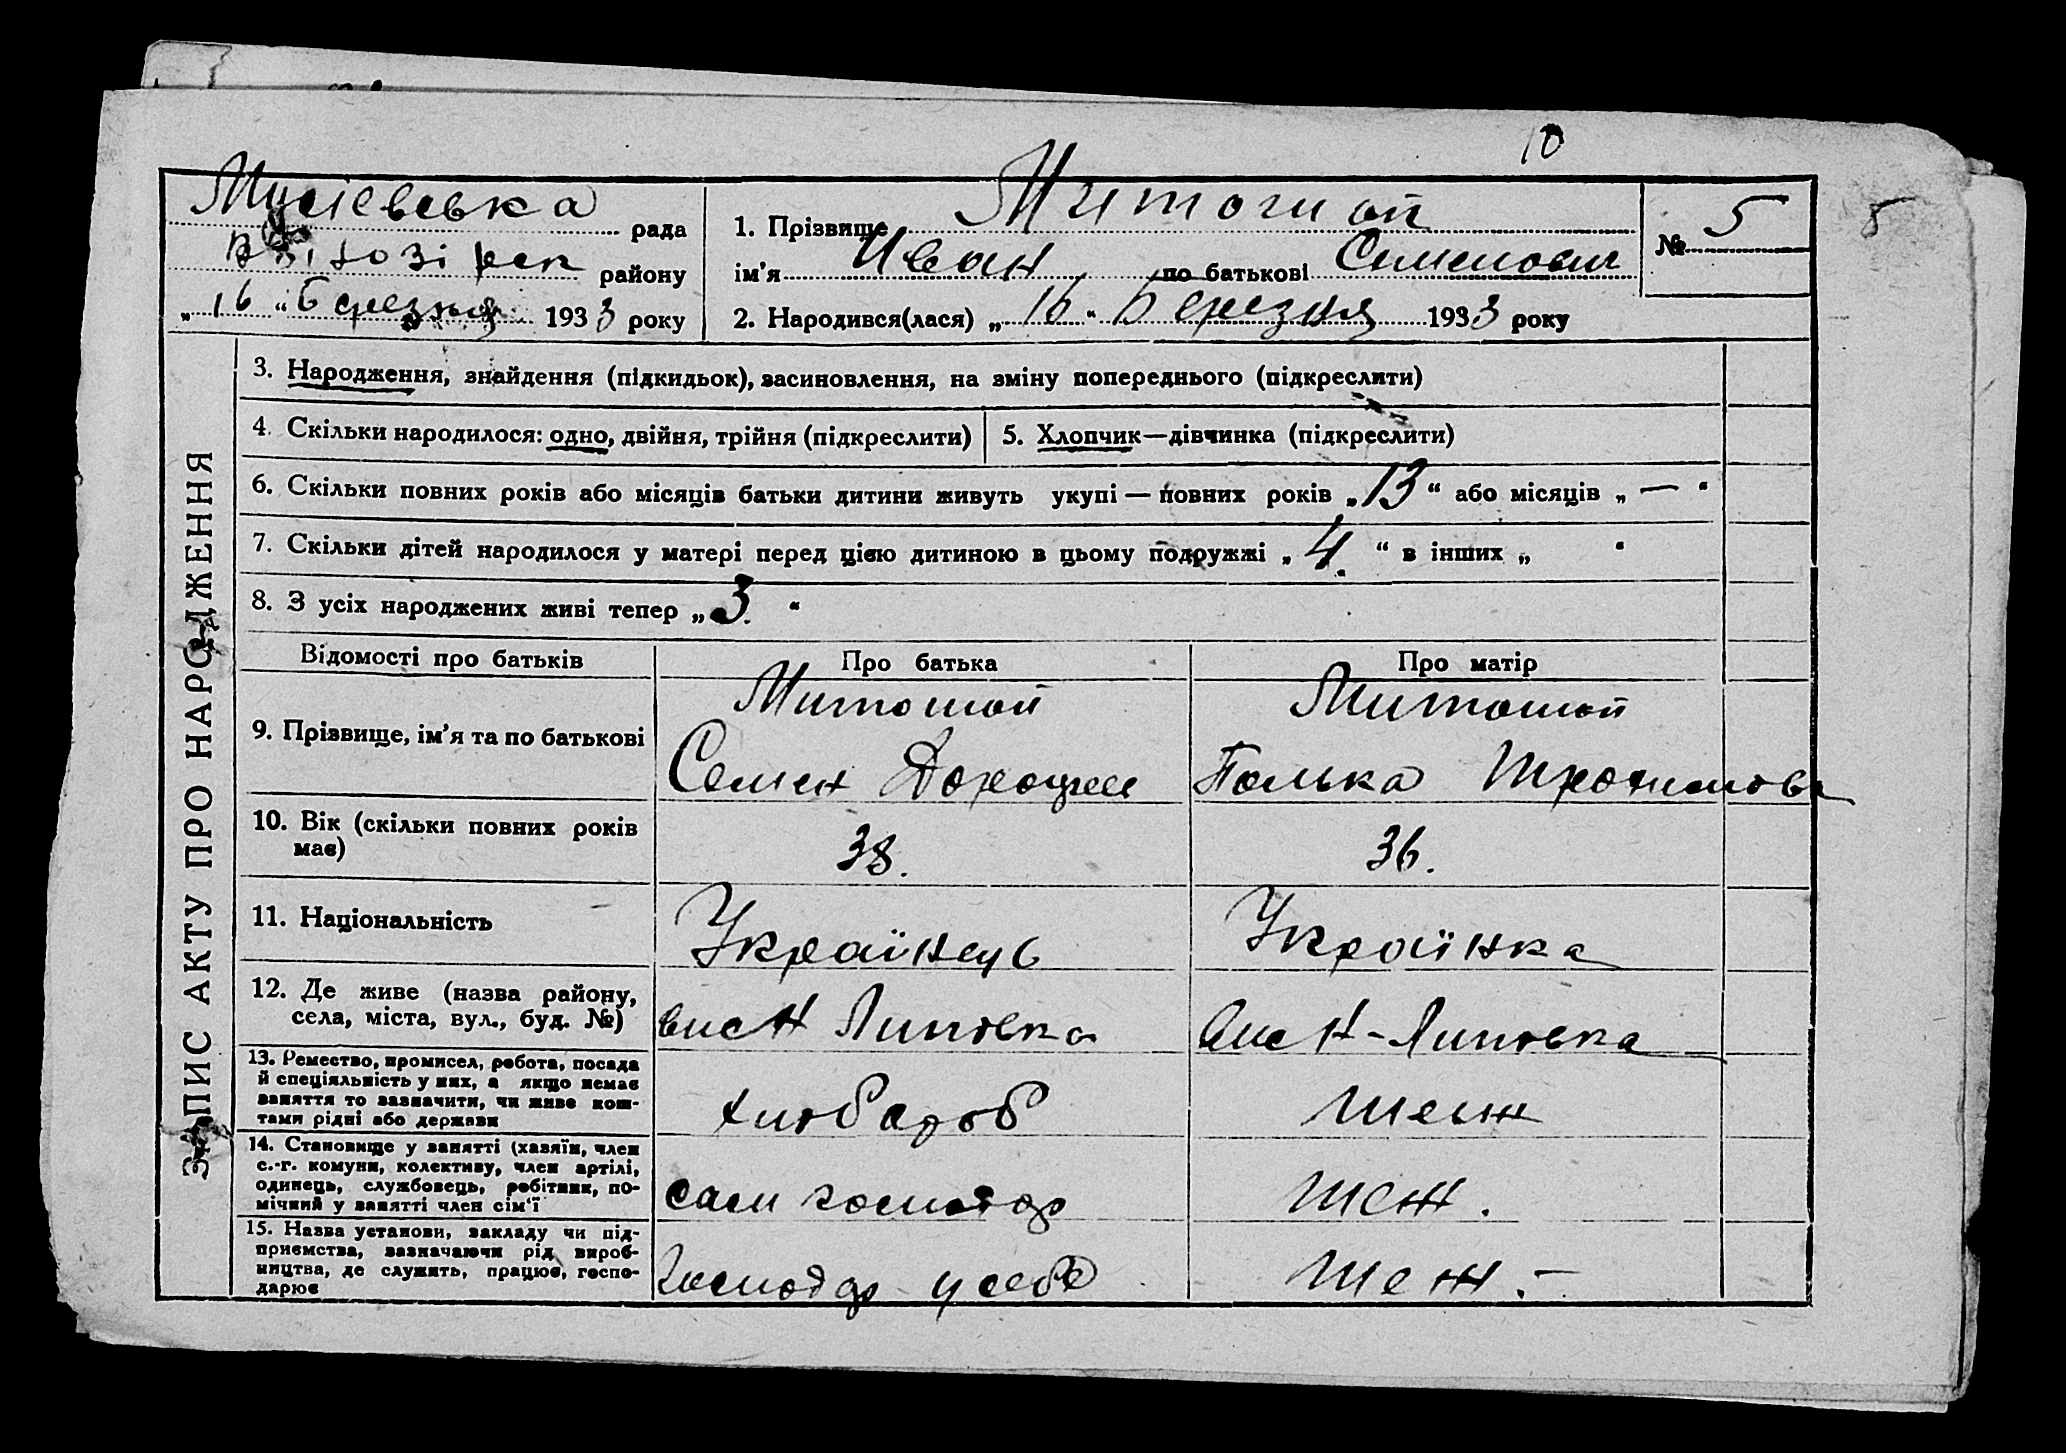 10
Мусієвська рада
району
„16“ Березня 1933 року
1. Прізвище Митошоп
ім’я Иван по батькові Семенович
2. Народився(лася) „16“ Березня 1933 року
№ 5
5
ЗАПИС АКТУ ПРО НАРОДЖЕННЯ
3. Народження, знайдення (підкидьок), засиновлення, на зміну попереднього (підкреслити)
4. Скільки народилося: одно, двійня, трійня (підкреслити)
5. Хлопчик—дівчинка (підкреслити)
6. Скільки повних років або місяців батьки дитини живуть укупі — повних років „13“ або місяців „—“
7. Скільки дітей народилося у матері перед цією дитиною в цьому подружжі „4.“ в інших „ “
8. З усіх народжених живі тепер „3.“
Відомості про батьків
Про батька
Про матір
9. Прізвище, ім’я та по батькові
Митошоп
Семен
Митошоп
Палька
10. Вік (скільки повних років
має)
38.
36.
11. Національність
Українець
Українка
12. Де живе (назва району,
села, міста, вул., буд. №)
вис Н Липовка
вис Н-Липовка
13. Ремество, промисел, робота, посада
й спеціяльність у них, а якщо немає
заняття то зазначити, чи живе кош-
тами рідні або держави
хлобароб
теж
14. Становище у занятті (хазяїн, член
с.-г. комуни, колективу, член артілі,
одинець, службовець, робітник, по-
мічний у занятті член сім’ї
сам господар
теж.
15. Назва установи, закладу чи під-
приємства, зазначаючи рід вироб-
ництва, де служить, працює, госпо-
дарює
господар у себе
теж.—